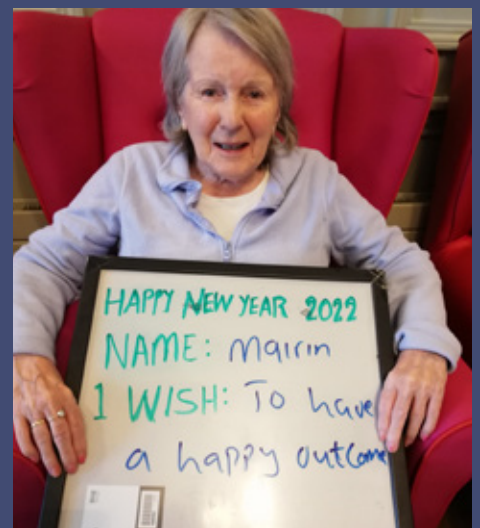 HAPPY NEW YEAR 2022
NAME: Mairin
1 WISH: To have
a happy outcome